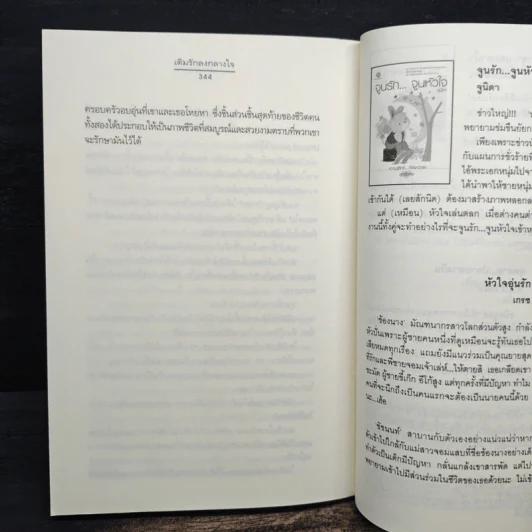 เติมรักลงกลางใจ
344
ครอบครัวอบอุ่นที่เขาและเธอโหยหา ซึ่งชิ้นส่วนชิ้นสุดท้ายของชีวิตคน
ทั้งสองได้ประกอบให้เป็นภาพชีวิตที่สมบูรณ์และสวยงามตราบที่พวกเขา
จะรักษามันไว้ได้
จูนรัก... จูนหัวใจ
จูนรัก...จูนหัว
จูนิตา
ข่าวใหญ่!!!
พยายามข่มขืนยัยก
เพียงเพราะข่าว
กับแผนการชั่วร้ายที่
ไอ้พระเอกหนุ่มไปจา
ได้นำพาให้ชายหนุ่ม
เข้ากันได้ (เลยสักนิด) ต้องมาสร้างภาพหลอกล
แต่ (เหมือน) หัวใจเล่นตลก เมื่อต่างคนต่า
งานนี้ทั้งคู่จะทำอย่างไรที่จะจูนรัก...จูนหัวใจเข้าห
หัวใจอุ่นรัก
เกรซ
'ช้องนาง' มัณฑนากรสาวโลกส่วนตัวสูง กำลัง
หัวปั่นเพราะผู้ชายคนหนึ่งที่ดูเหมือนจะรู้ทันเธอไป
เสียหมดทุกเรื่อง แถมยังมีแนวร่วมเป็นคุณยายสุด
ที่รักและพี่ชายจอมเจ้าเล่ห์...ให้ตายสิ เธอเกลียดเขา
ระมัด ผู้ชายขี้เก๊ก อีโก้สูง แต่ทุกครั้งที่มีปัญหา ทำไม
คนที่จะนึกถึงเป็นคนแรกจะต้องเป็นนายคนนี้ด้วย
นะ...เฮ้อ
'ชิชนนท์' สาบานกับตัวเองอย่างแน่แน่ว่าหาก
ตัวเข้าไปใกล้กับแม่สาวจอมแสบที่ชื่อช้องนางอย่างเด็
ทำตัวเป็นเด็กมีปัญหา กลั่นแกล้งเขาสารพัด แต่ไป
พยายามเข้าไปมีส่วนร่วมในชีวิตของเธอด้วยนะ ไม่เข้